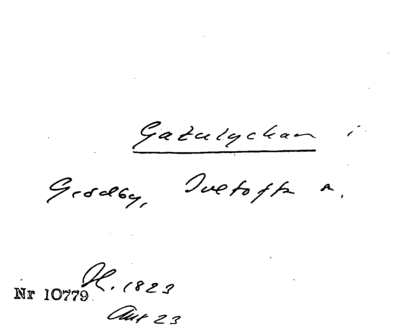 Gatulyckan i
Grödby, Ivetofta s.
Nr 10779 1823
23